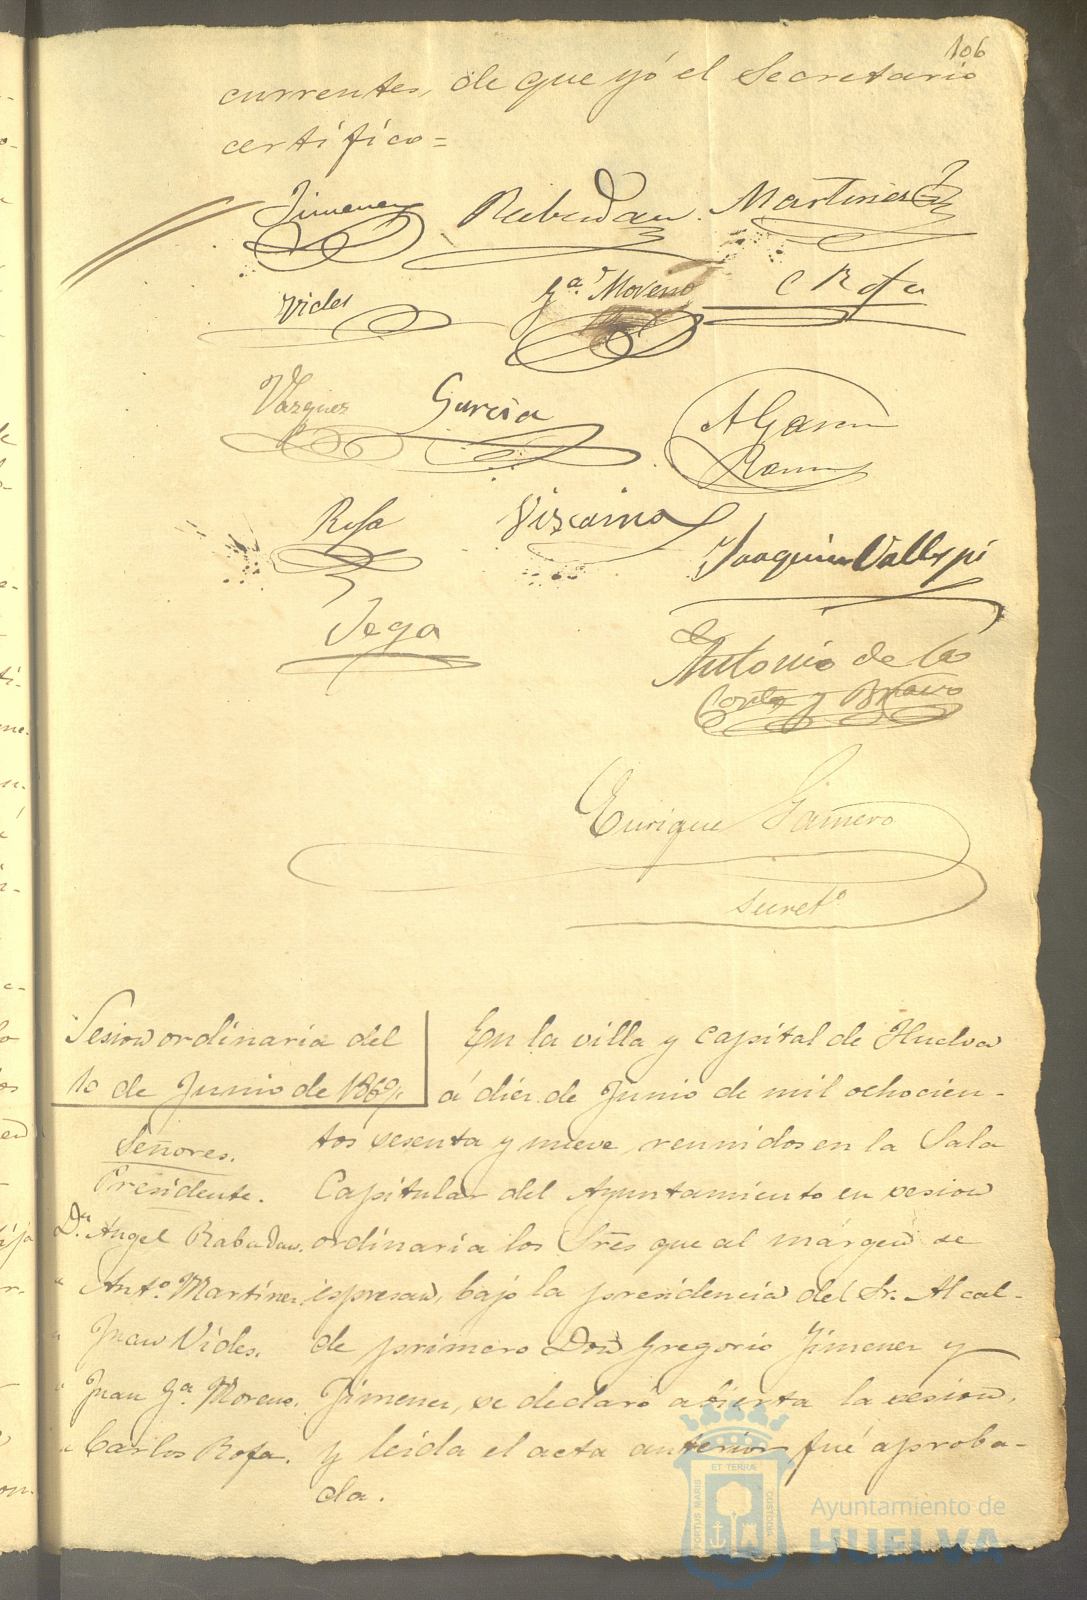 106
currentes, de que yó el Secretario
certifico=
Jimenez Rabadan Martinez
Vides Ga. Moreno C Rofa
Vazquez Garcia A Garcia
Ramos
Rofa Vizcaino Joaquin Vallespi
Vega
Antonio de la
Corte y Bravo
Enrique Gamero
Secreto
Sesion ordinaria del
10 de Junio de 1869.
Señores.
Presidente.
Dn. Angel Rabadan.
" Anto. Martinez.
" Juan Vides.
" Juan Ga. Moreno.
" Carlos Rofa.
En la villa y capital de Huelva
á diez de Junio de mil ochocien-
tos sesenta y nueve reunidos en la Sala
Capitular del Ayuntamiento en sesion
ordinaria los Sres que al márgen se
espresan, bajo la presidencia del Sr. Alcal-
de primero Don Gregorio Jimenez y
Jimenez, se declaró abierta la sesion,
y leida el acta anterior fué aproba-
da.
PORTUS MARIS ET TERRAE CUSTODIA
Ayuntamiento de
HUELVA